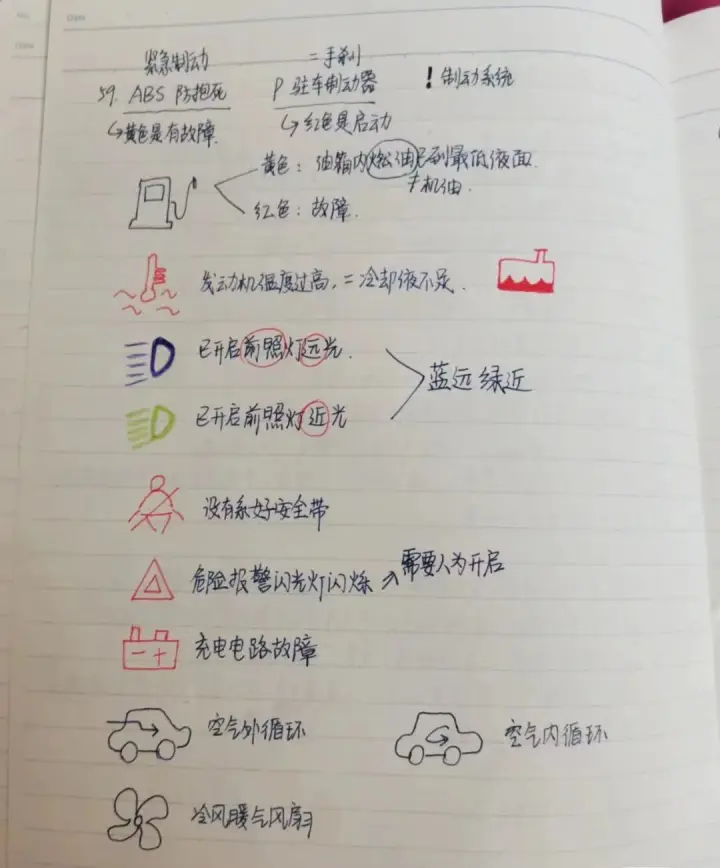 紧急制动 =手刹
59. ABS 防抱死 P 驻车制动器 ! 制动系统
↳黄色是有故障. ↳红色是启动
黄色: 油箱内燃油已到最低液面.
≠机油.
红色: 故障.
发动机温度过高. = 冷却液不足.
已开启前照灯远光.
蓝远绿近
已开启前照灯近光
没有系好安全带
危险报警闪光灯闪烁 →需要人为开启
- +
充电电路故障
空气外循环 空气内循环
冷风暖气风扇